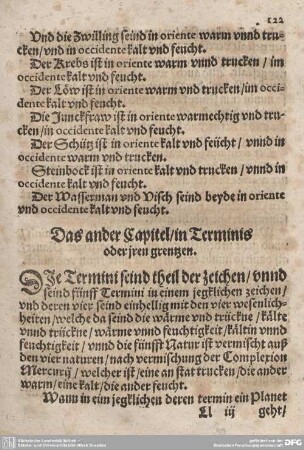 122
Vnd die Zwilling seind in oriente warm vnnd tru-
cken/vnd in occidente kalt vnd feucht.
Der Krebs ist in oriente warm vnnd trucken / im
occidente kalt vnd feucht.
Der Löw ist in oriente warm vnd trucken/im occi-
dente kalt vnd feucht.
Die Junckfraw ist in oriente warmechtig vnd tru-
cken/in occidente kalt vnd feucht.
Der Schütz ist in oriente kalt vnd feücht / vnnd in
occidente warm vnd trucken.
Steinbock ist in oriente kalt vnd trucken / vnnd in
occidente kalt vnd feucht.
Der Wasserman vnd Visch seind beyde in oriente
vnd occidente kalt vnd feucht.
Das ander Capitel/in Terminis
oder jren grentzen.
DIe Termini seind theil der zeichen / vnnd
seind fünff Termini in einem jegklichen zeichen/
vnd deren vier seind einhellig mit den vier wesenlich-
heiten/welche da seind die wärme vnd trückne / kälte
vnnd trückne / wärme vnnd feuchtigkeit / kältin vnnd
feuchtigkeit / vnnd die fünfft Natur ist vermischt auß
den vier naturen / nach vermischung der Complexion
Mercurij / welcher ist / eine an stat trucken/die ander
warm / eine kalt / die ander feucht.
Wann in ein jegklichen deren termin ein Planet
Ll iij geht/